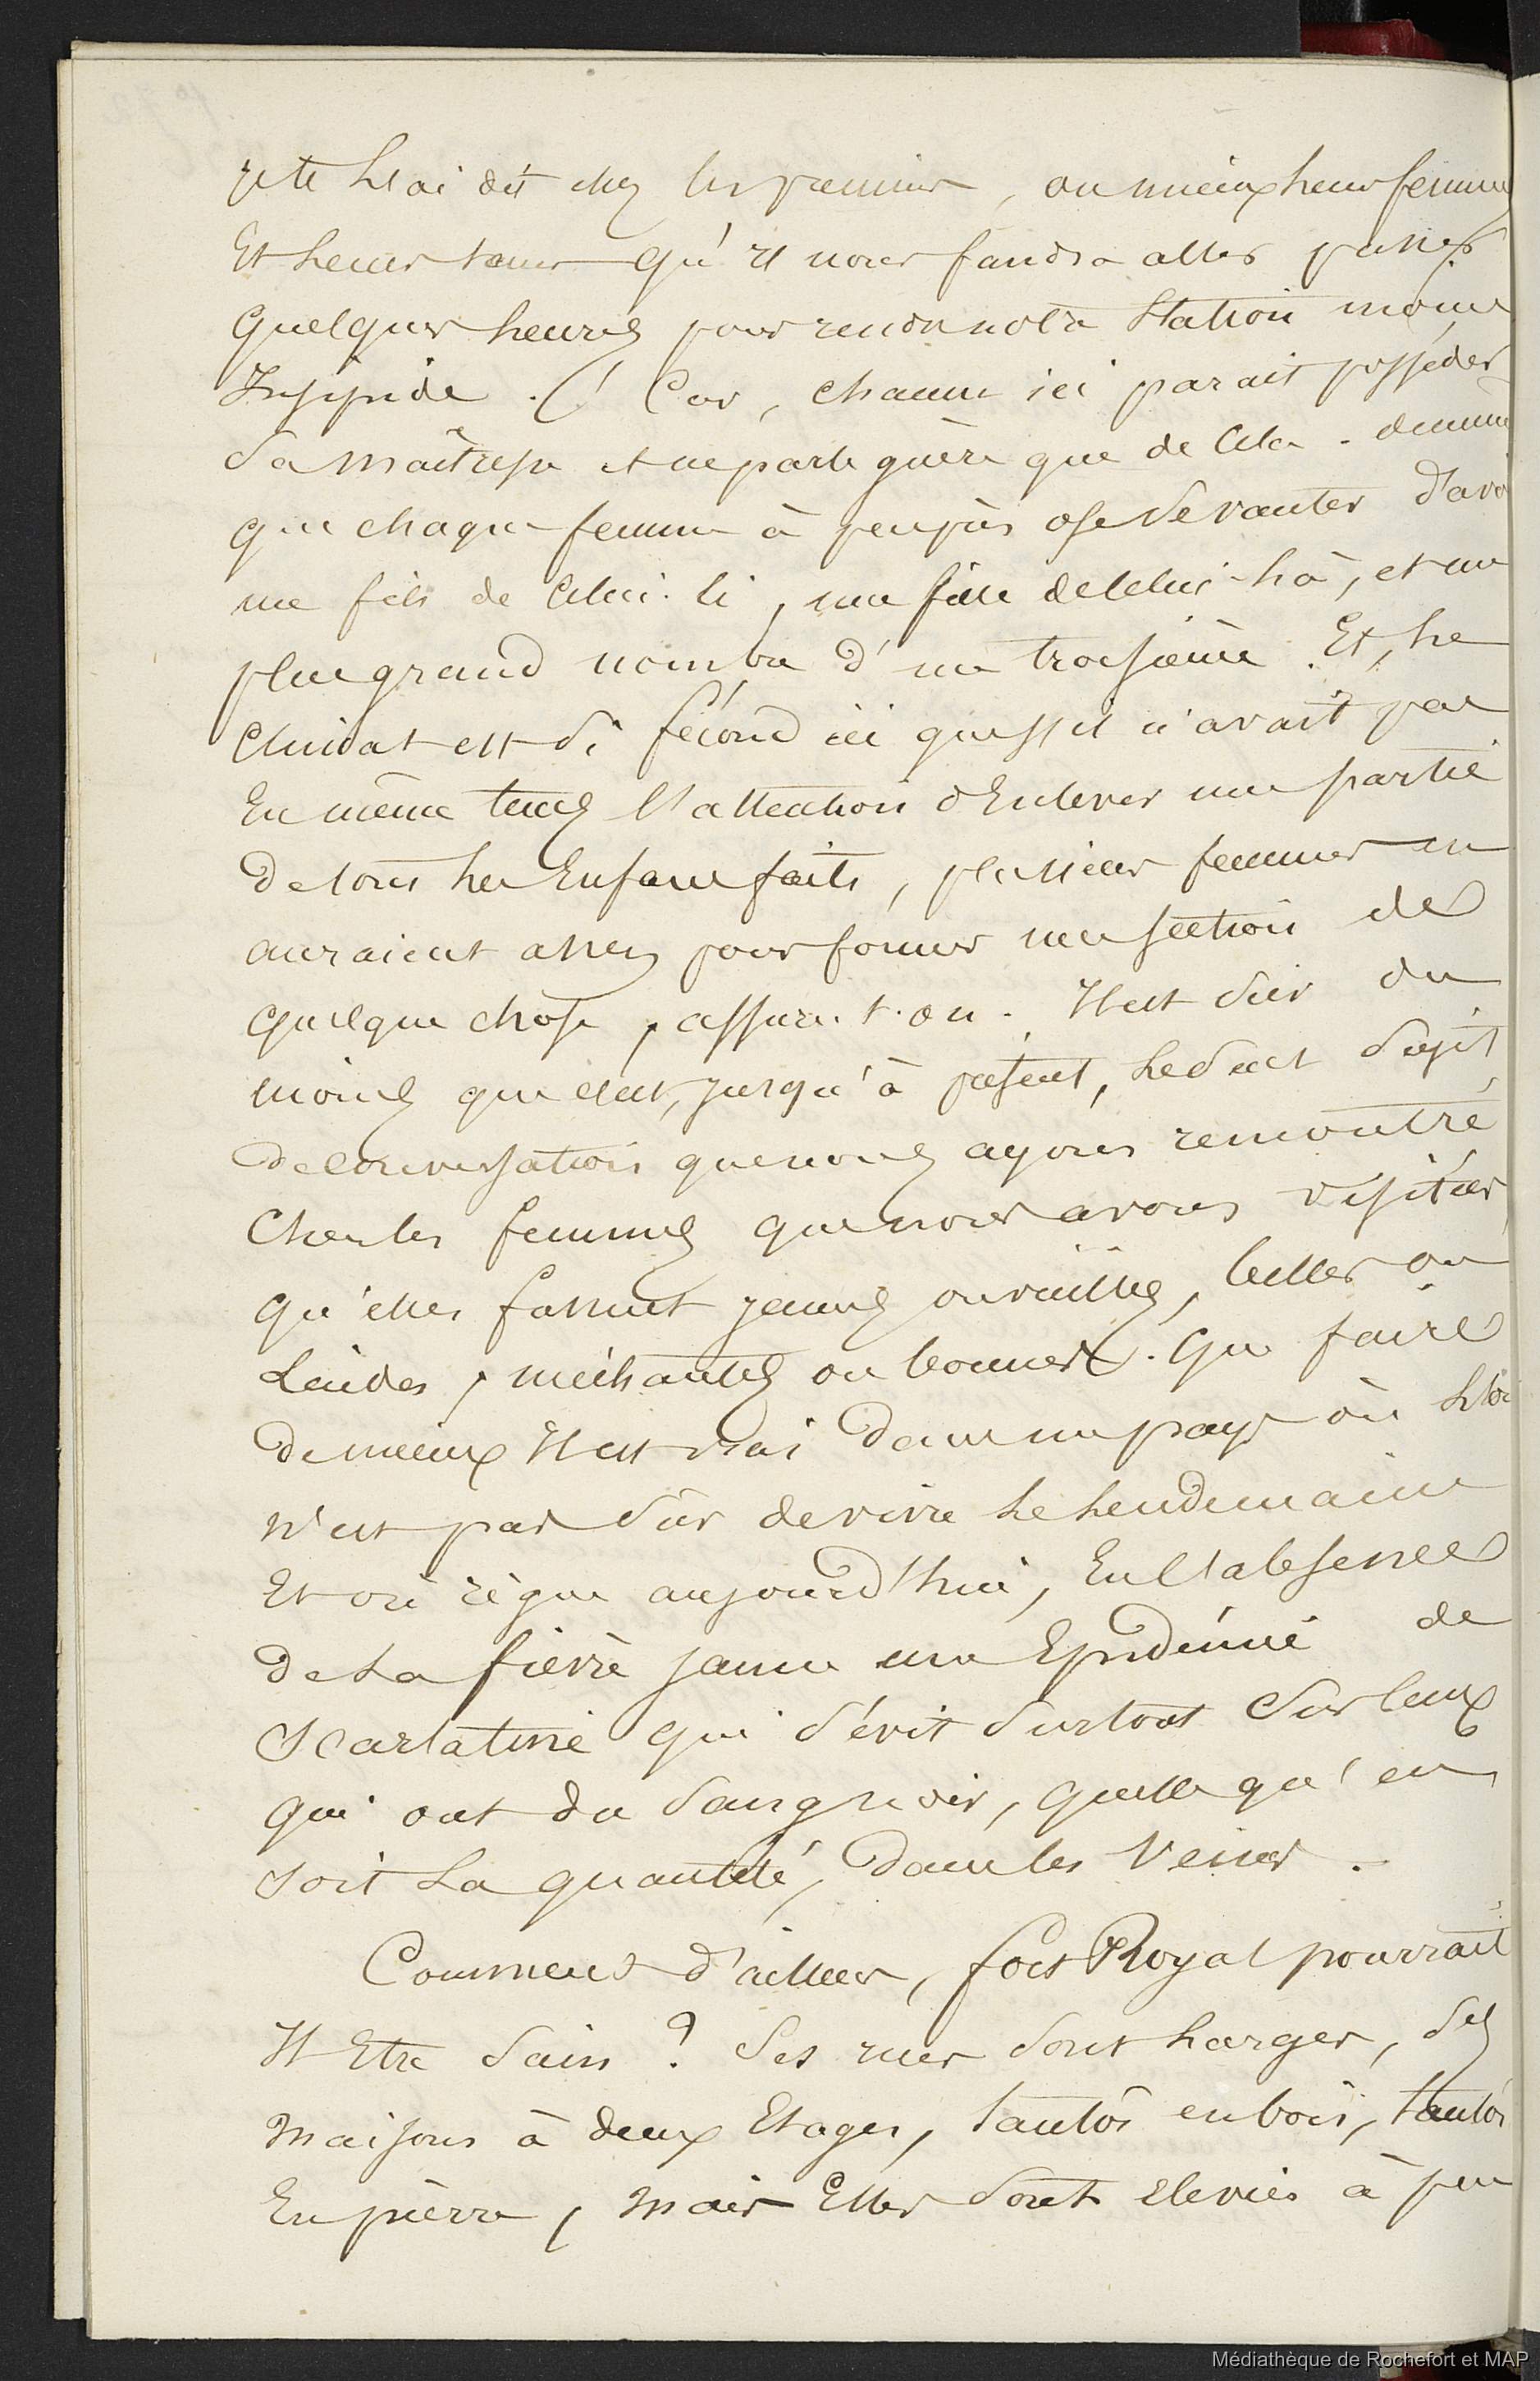 je te l'ai dit chez les premiers, ou mieux leurs femmes
Et leurs sœurs qu'il nous faudra aller passer
Quelques heures pour rendre notre Station moins
Insipide. Car, chacun ici parait posséder
Sa maîtresse et ne parle guère que de Cela. de même
que chaque femme à peu près ose se vanter d'avoir
un fils de Celui-ci, une fille de Celui-là, et un
plus grand nombre d'un troisième. Et, le
Climat est si fécond ici que s'il n'avait pas
En même temps l'attention d'Enlever une partie
de tous les Enfans faits, plusieurs femmes en
auraient assez pour former une section de
quelque chose, assure-t-on. Il est sûr du
moins que c'est, jusqu'à présent, le seul sujet
de conversation que nous ayons rencontré
Chez les femmes que nous avons visitées,
qu'elles fussent jeunes ou vieilles, belles ou
Laides, méchantes ou bonnes. Que faire
de mieux Il est vrai dans un pays où l'on
n'est pas sûr de vivre le lendemain
Et où règne aujourd'hui, En l'absence
de la fièvre jaune une Epidémie de
Scarlatine qui sévit surtout sur ceux
qui ont du sang noir, quelle qu'en
soit La quantité, dans les Veines.
Comment d'ailleurs, fort Royal pourrait
Il Etre sain ? Ses rues sont larges, ses
maisons à deux Etages, tantôt en bois, tantôt
En pierre, mais Elles sont élevées à peu
Médiathèque de Rochefort et MAP